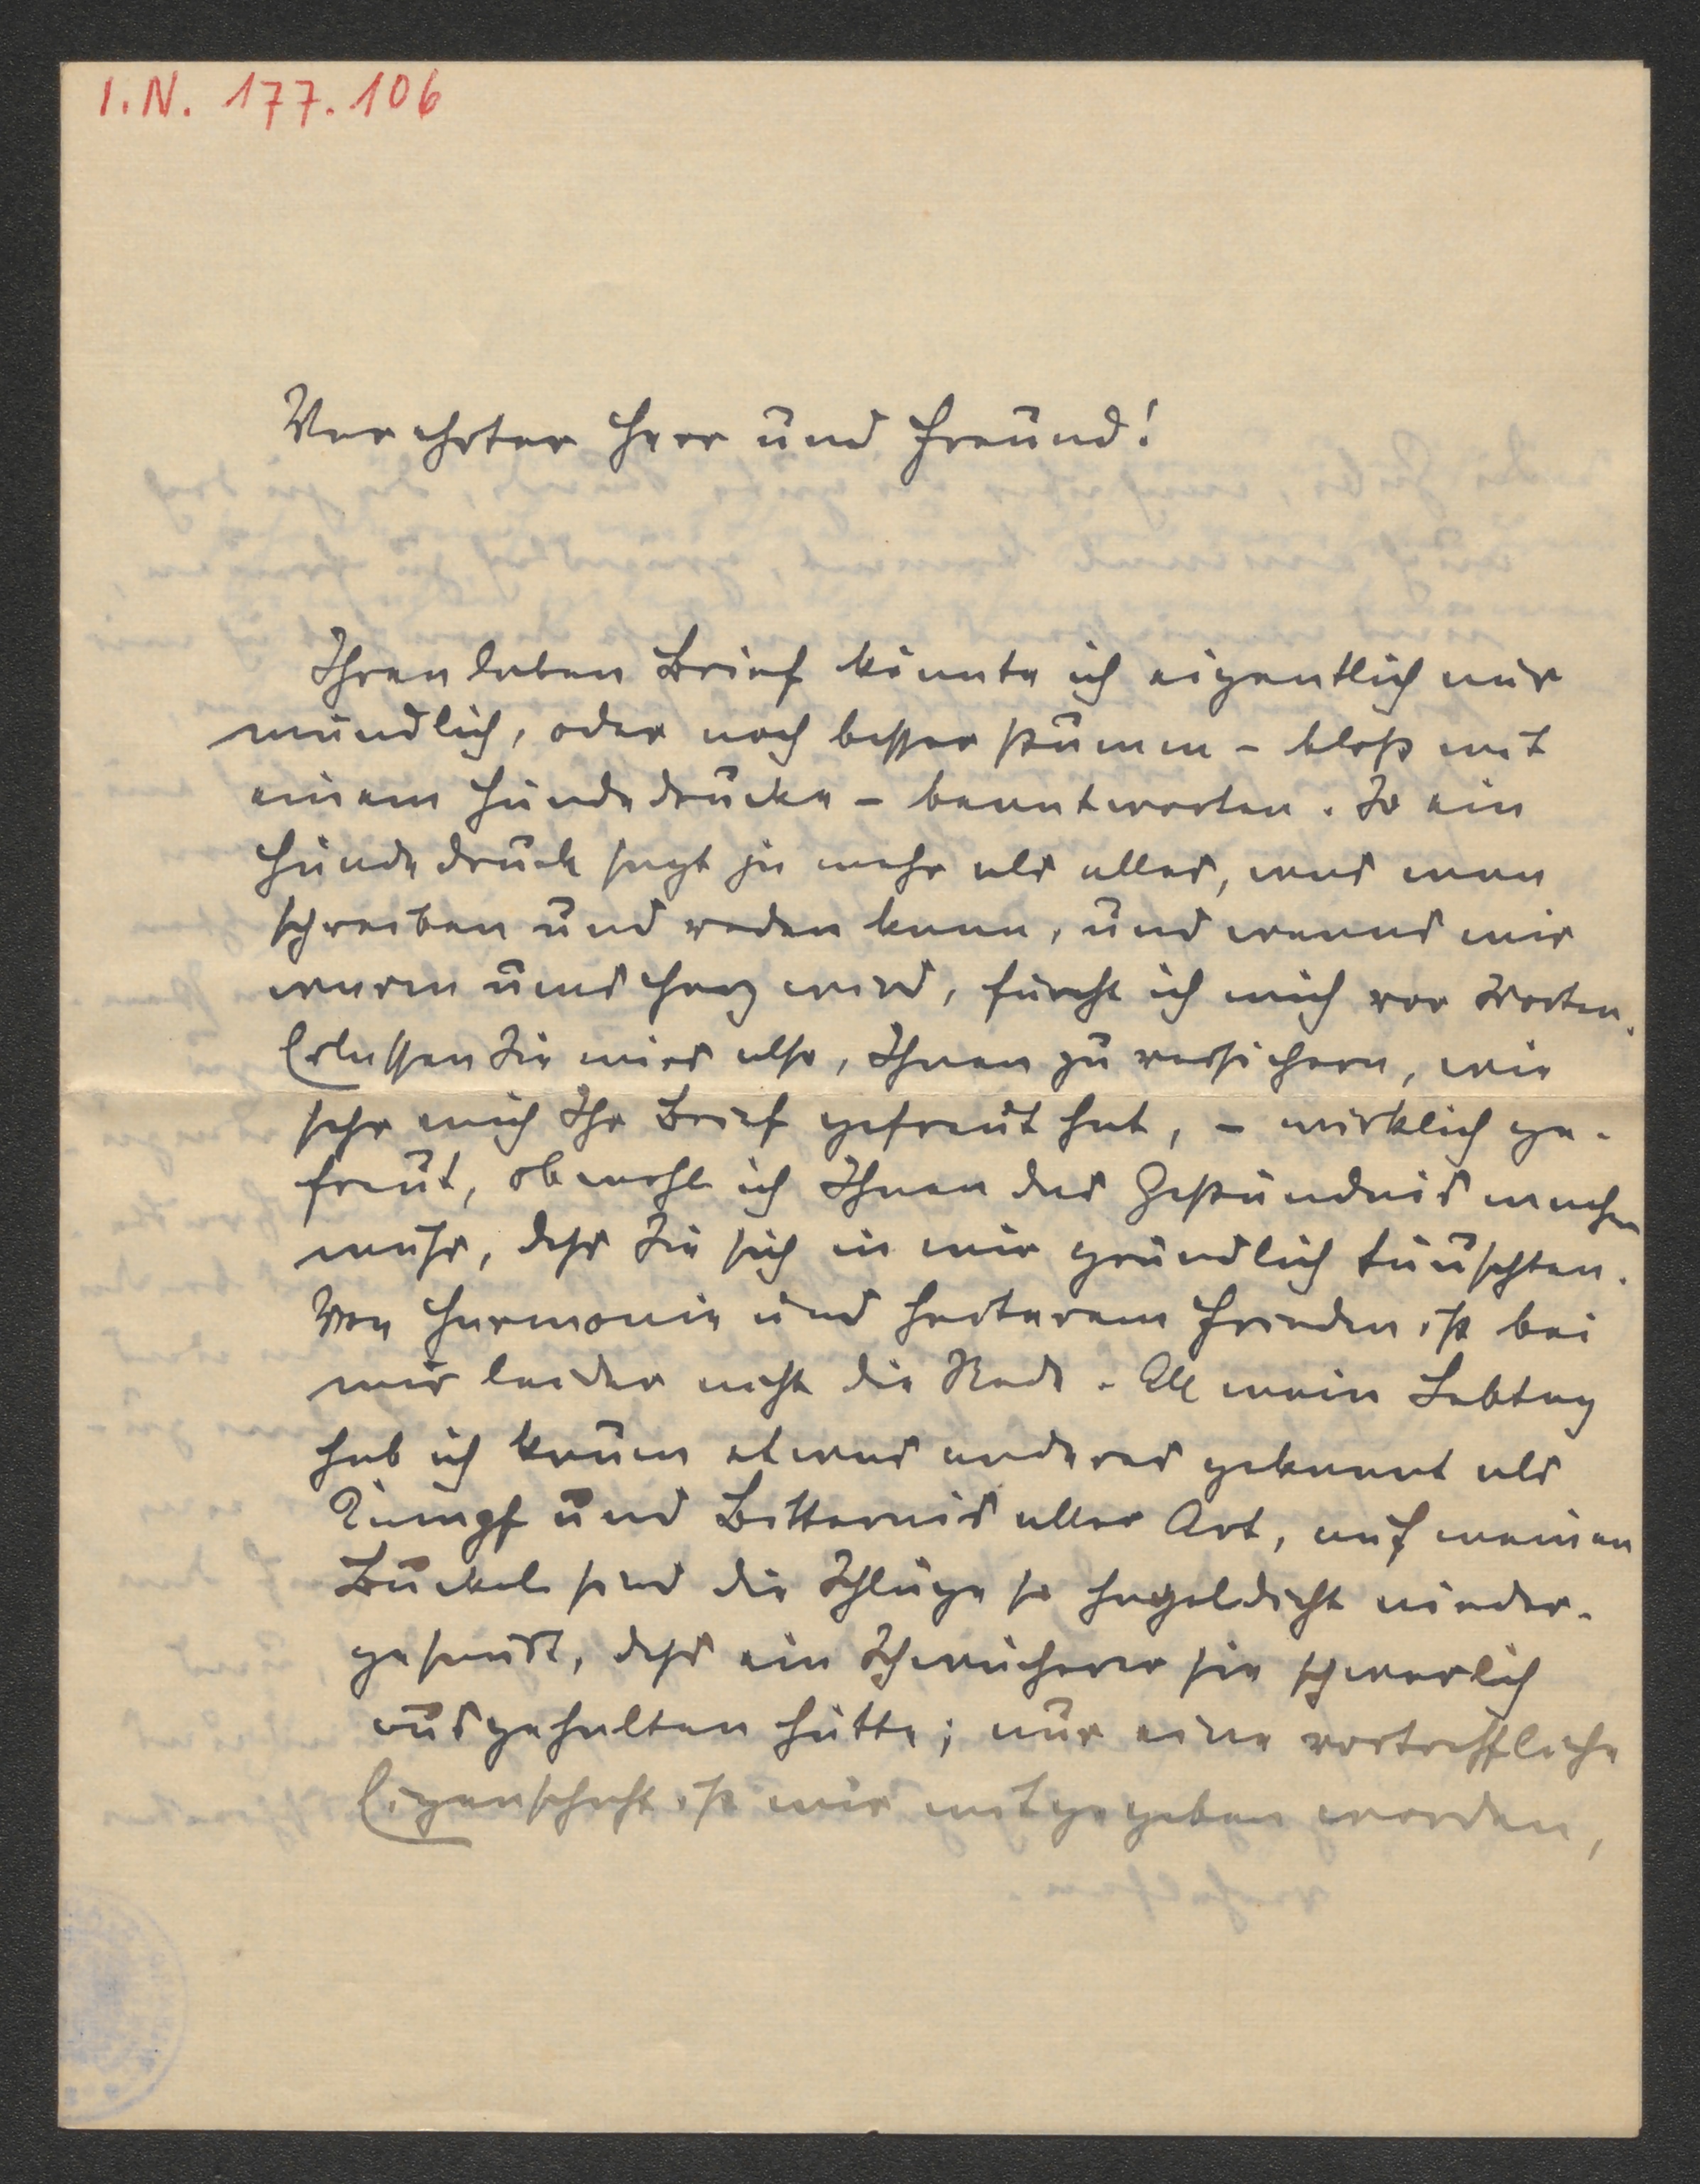 I.N. 177.106
Verehrter Herr und Freund!
Ihren lieben Brief könnte ich eigentlich nur
mündlich, oder noch besser stumm – bloß mit
einem Händedrucke – beantworten. So ein
Händedruck sagt ja mehr als alles, was man
schreiben und reden kann, und wenns mir
warm ums Herz wird, fürcht ich mich vor Worten.
Erlassen Sie mirs also, Ihnen zu versichern, wie
sehr mich Ihr Brief gefreut hat, – wirklich ge-
freut, obwohl ich Ihnen das Geständnis machen
muß, daß Sie sich in mir gründlich täuschten.
Von Harmonie und heiterem Frieden ist bei
mir leider nicht die Rede. All mein Lebtag
hab ich kaum etwas anderes gekannt als
Kämpf und Bitternis aller Art, auf meinen
Buckel sind die Schläge so hageldicht nieder-
gesaust, daß ein Schwächerer sie schwerlich
ausgehalten hätte; nur eine vortreffliche
Eigenschaft ist mir mitgegeben worden,